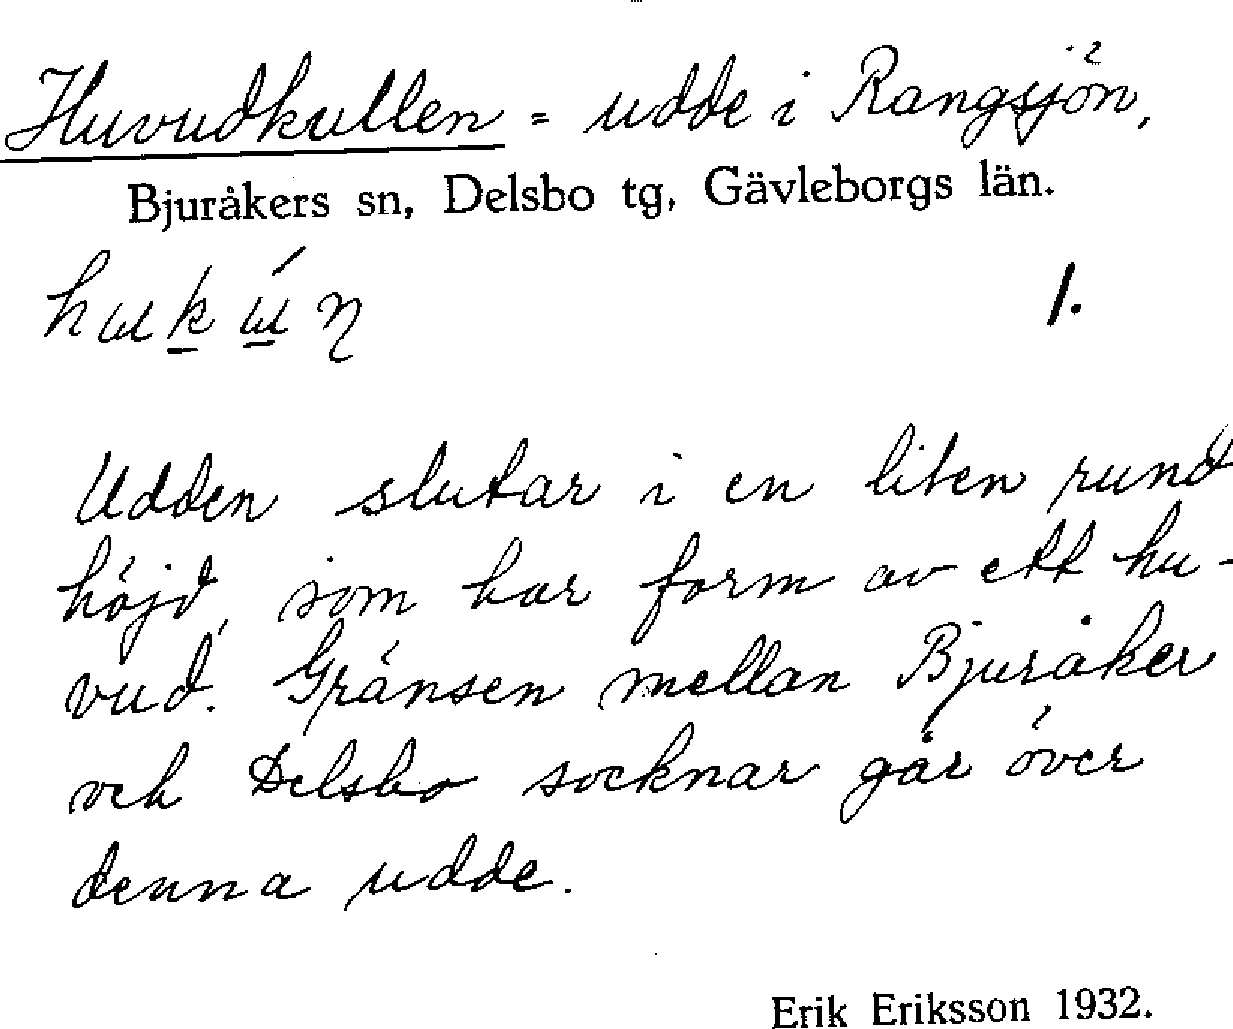 Huvudkullen = udde i Rangsjön,
Bjuråkers sn, Delsbo tg, Gävleborgs län.
1.
Udden slutar i en liten rund
höjd, som har form av ett hu-
vud. Gränsen mellan Bjuråker
och Delsbo socknar går över
denna udde.
Erik Eriksson 1932.